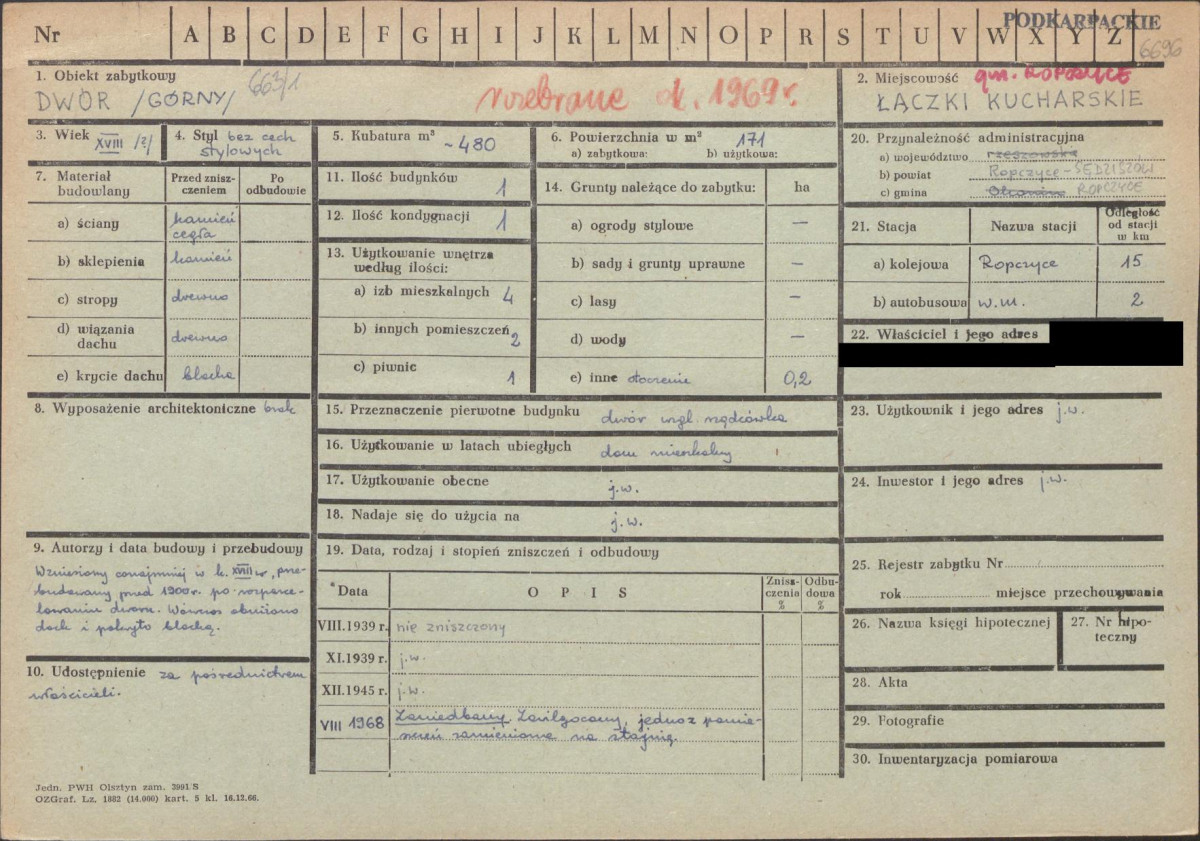 Nr A B C D E F G H I J K L M N O P R S T U V W X Y Z
PODKARPACKIE
6696
1. Obiekt zabytkowy 663/1
DWÓR /GÓRNY/
rozebrane ok. 1969 r.
2. Miejscowość gm. ROPCZYCE
ŁĄCZKI KUCHARSKIE
3. Wiek XVIII /?/
4. Styl bez cech
stylowych
5. Kubatura m³ ~480
6. Powierzchnia w m² 171
a) zabytkowa: b) użytkowa:
7. Materiał
budowlany
Przed znisz-
czeniem
Po
odbudowie
a) ściany kamień
cegła
b) sklepienia kamień
c) stropy drewno
d) wiązania
dachu drewno
e) krycie dachu blacha
8. Wyposażenie architektoniczne brak
9. Autorzy i data budowy i przebudowy
Wzniesiony conajmniej w k. XVIII w, prze-
budowany przed 1900 r. po rozparce-
lowaniu dworu. Wówczas obniżono
dach i pokryto blachą.
10. Udostępnienie za pośrednictwem
właścicieli.
11. Ilość budynków 1
12. Ilość kondygnacji 1
13. Użytkowanie wnętrza
według ilości:
a) izb mieszkalnych 4
b) innych pomieszczeń 2
c) piwnic 1
14. Grunty należące do zabytku: ha
a) ogrody stylowe —
b) sady i grunty uprawne —
c) lasy —
d) wody —
e) inne otoczenie 0,2
15. Przeznaczenie pierwotne budynku dwór wzgl. rządcówka
16. Użytkowanie w latach ubiegłych dom mieszkalny
17. Użytkowanie obecne j.w.
18. Nadaje się do użycia na j.w.
19. Data, rodzaj i stopień zniszczeń i odbudowy
Data O P I S
Znisz-
czenia
%
Odbu-
dowa
%
VIII.1939 r. nie zniszczony
XI.1939 r. j.w.
XII.1945 r. j.w.
VIII 1968 Zaniedbany, zawilgocony, jedno z pomie-
szczeń zamienione na stajnię.
20. Przynależność administracyjna
a) województwo rzeszowskie
b) powiat Ropczyce-SĘDZISZÓW
c) gmina ROPCZYCE
21. Stacja Nazwa stacji
Odległość
od stacji
w km
a) kolejowa Ropczyce 15
b) autobusowa w.m. 2
22. Właściciel i jego adres
23. Użytkownik i jego adres j.w.
24. Inwestor i jego adres j.w.
25. Rejestr zabytku Nr
rok miejsce przechowywania
26. Nazwa księgi hipotecznej
27. Nr hipo-
teczny
28. Akta
29. Fotografie
30. Inwentaryzacja pomiarowa
Jedn. PWH Olsztyn zam. 3991/S
OZGraf. Lz. 1882 (14.000) kart. 5 kl. 16.12.66.